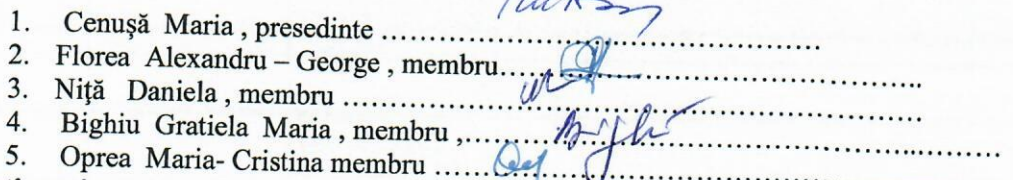 1. Cenuşă Maria , presedinte ……………………………………………
2. Florea Alexandru – George , membru……………………………………………..
3. Niţă Daniela , membru ……………………………………………………………
4. Bighiu Gratiela Maria , membru ,……………………………………………………
5. Oprea Maria- Cristina membru ……………………………………………